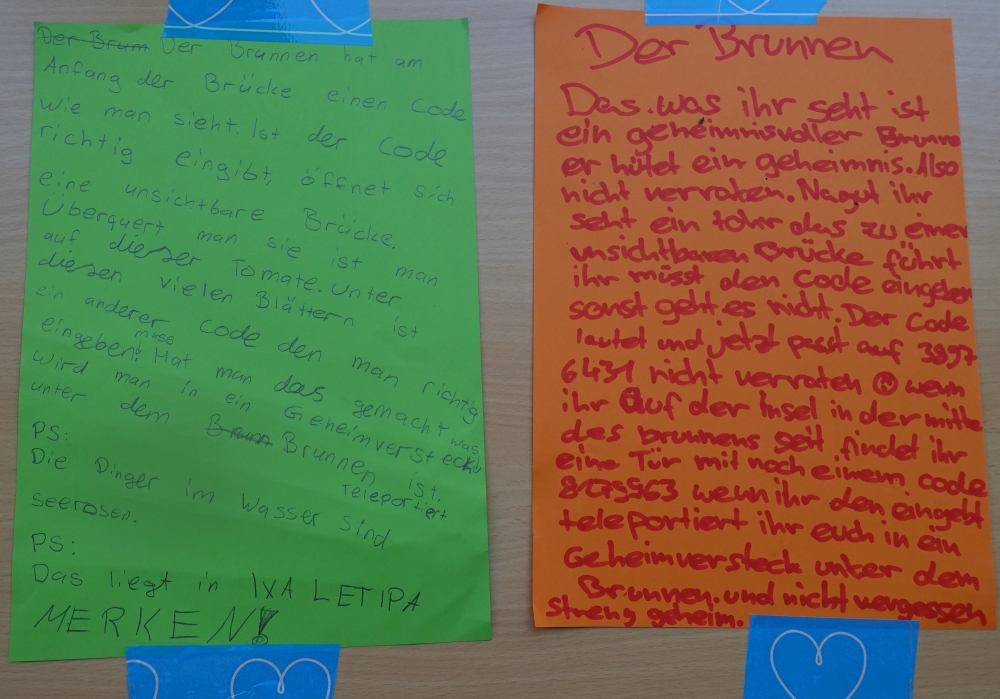 Der Brum Der Brunnen hat am
Anfang der Brücke einen Code
wie man sieht. Ist der Code
richtig eingibt, öffnet sich
eine unsichtbare Brücke.
Überquert man sie ist man
auf dieser Tomate. Unter
diesen vielen Blättern ist
ein anderer Code den man richtig
eingeben muss! Hat man das gemacht was
wird man in ein Geheimversteck
unter dem Brunnen ist.
Teleportiert
PS:
Die Dinger im Wasser sind
seerosen.
PS:
Das liegt in IXA LETIPA
MERKEN!
Der Brunnen
Das was ihr seht ist
ein geheimnisvoller Brunne
er hütet ein geheimnis. Also
nicht verraten. Nagut ihr
seht ein tohr das zu einer
unsichtbaren Brücke führt
ihr müsst den Code eingeben
sonst geht es nicht. Der Code
lautet und jetzt passt auf 3957
6431 nicht verraten wenn
ihr auf der Insel in der mitte
des brunnens seit findet ihr
eine Tür mit noch einem code
wenn ihr den eingebt
teleportiert ihr euch in ein
Geheimversteck unter dem
Brunnen. und nicht vergessen
streng geheim.